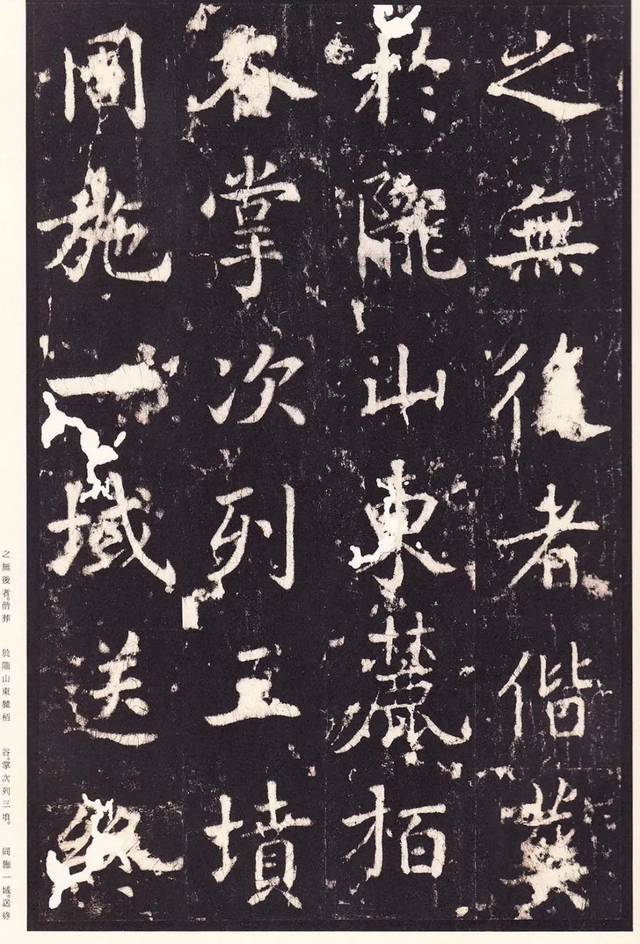 之無後者偕葬
於隴山東麓栢
谷掌次列三墳
同施一域送終
之無後者。偕葬 於隴山東麓栢 谷。掌次列三墳。 同施一域。送終